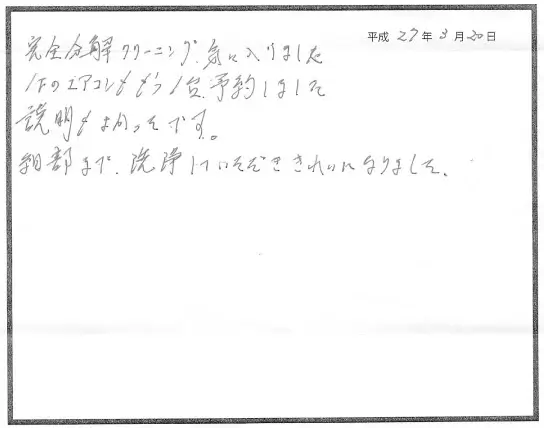 平成 27年 3月 20日
完全分解クリーニング、気に入りました
1Fのエアコンももう1台予約しました
説明もよかったです。
細部まで、洗浄していただききれいになりました。